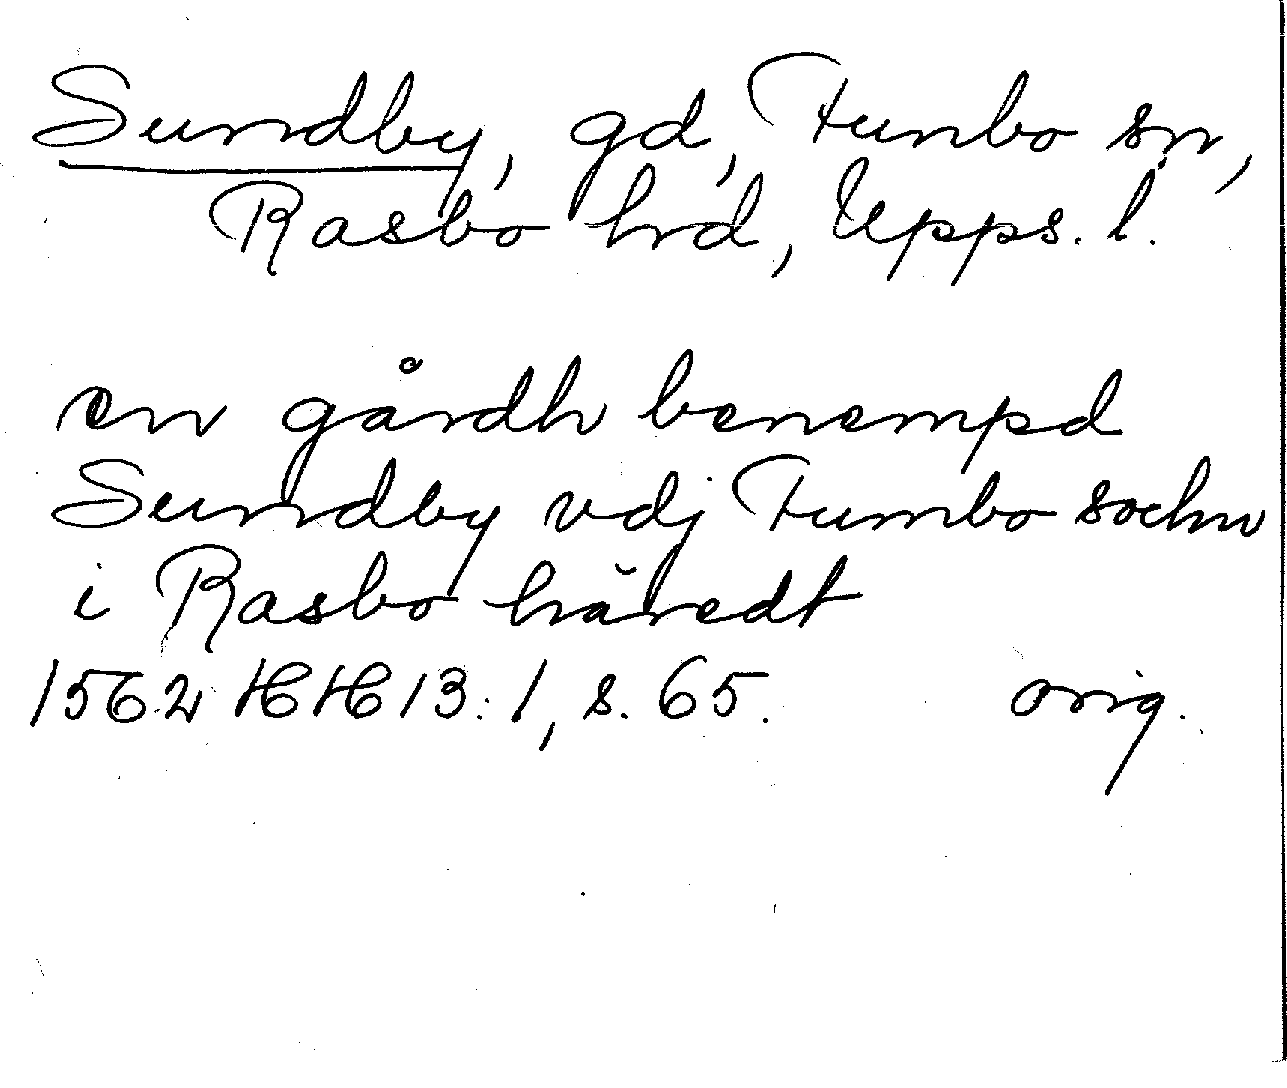 Sundby, gd, Funbo sn,
Rasbo hrd, Upps. l.
en gårdh benempd
Sundby vdj Fumbo sochn
i Rasbo häredt
1562 HH 13:1, s. 65. orig.